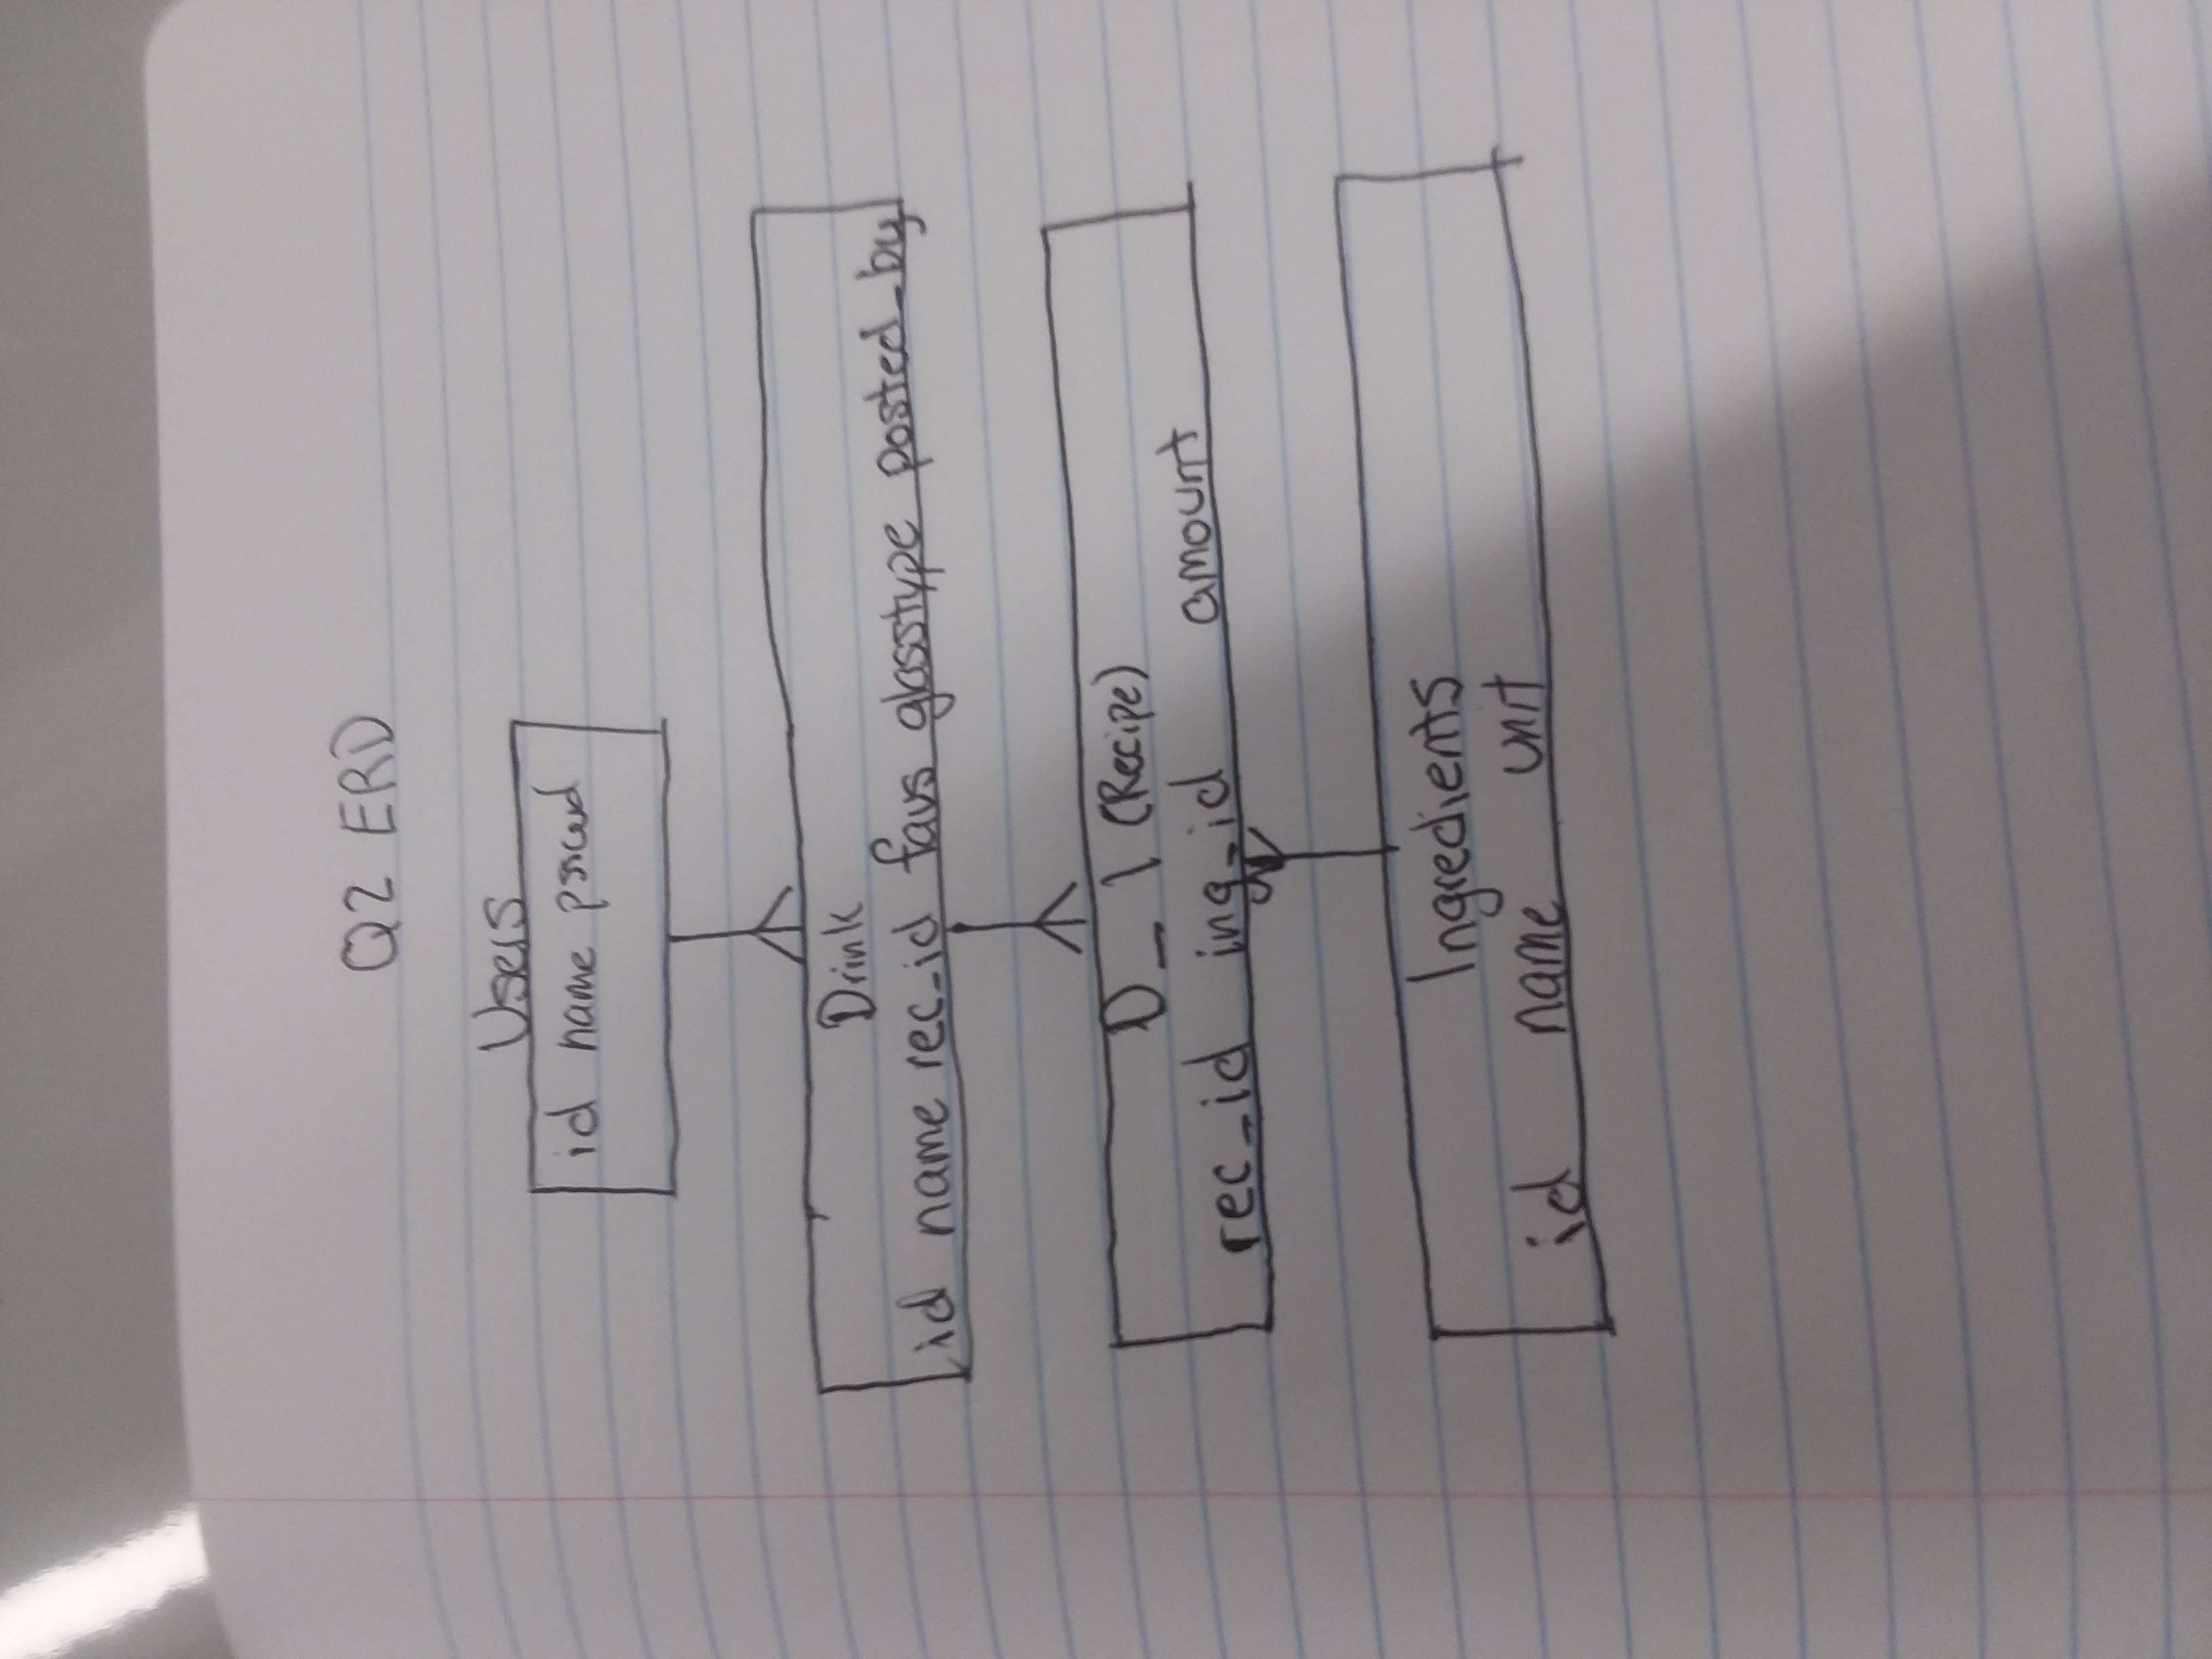 Q2 ERD
Users
id name psswd
Drink
id name rec_id favs glasstype posted_by
D_I (Recipe)
rec_id ing_id amount
Ingredients
id name unit